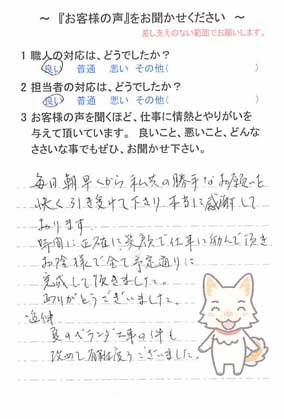 ～ 『お客様の声』をお聞かせください ～
差し支えのない範囲でお願いします。
1 職人の対応は、どうでしたか？
良い 普通 悪い その他( )
2 担当者の対応は、どうでしたか？
良い 普通 悪い その他( )
3 お客様の声を聞くほど、仕事に情熱とやりがいを
与えて頂いています。 良いこと、悪いこと、どんな
ささいな事でもぜひ、お聞かせ下さい。
毎日朝早くから私共の勝手なお願いを
快く引き受けて下さり、本当に感謝して
おります。
時間に正確に笑顔で仕事に励んで頂き
お陰様で全て予定通りに
完成して頂きました。
ありがとうございました。
追伸
裏のベランダ工事の件も
改めて有難度うございました。